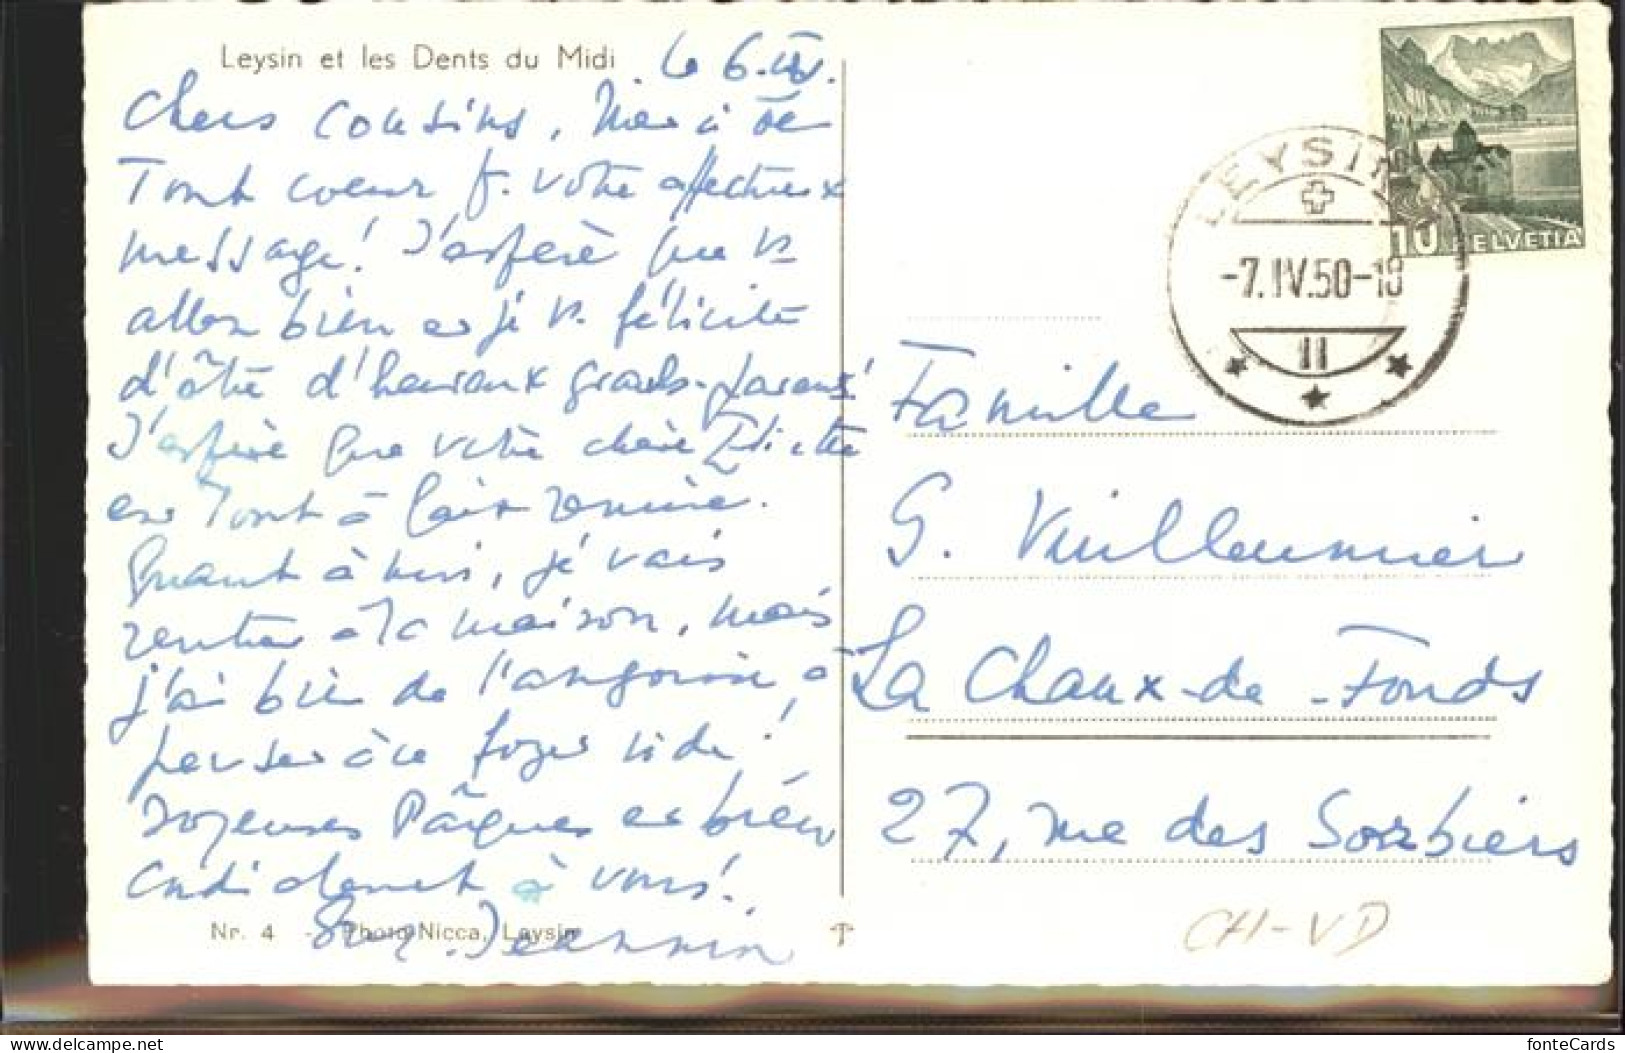 Leysin et les Dents du Midi
Le 6.IV.
Chers cousins, Merci de
Tout coeur p. votre affectueux
message! J'espère que v.
allez bien et je v. félicite
d'être d'heureux grands-parents!
J'espère que votre chère
est Tout à fait remise.
Quant à moi, je vais
rentrer à la maison, mais
j'ai bien de l'angoisse, à
penser à ce foyer vide!
Joyeuses Pâques et bien
cordialement à vous!
Nr. 4 - Photo Nicca, Leysin
LEYSIN
-7.IV.50-18
II
10 HELVETIA
Famille
G. Vuilleumier
La Chaux-de-Fonds
27, rue des Sorbiers
CH-VD
www.delcampe.net
fonteCards